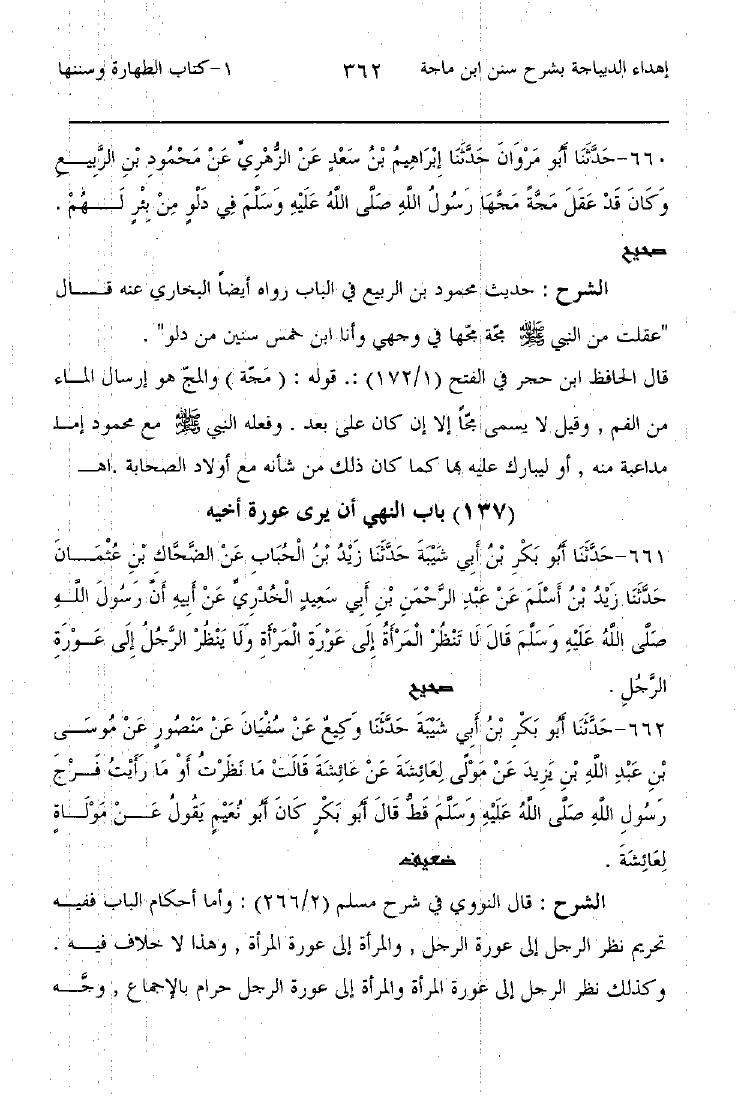 إهداء الديباجة بشرح سنن ابن ماجة ٣٦٢ ١-كتاب الطهارة وسننها
٦٦٠-حَدَّثَنَا أَبُو مَرْوَانَ حَدَّثَنَا إِبْرَاهِيمُ بْنُ سَعْدٍ عَنْ الزُّهْرِيِّ عَنْ مَحْمُودِ بْنِ الرَّبِيـــعِ
وَكَانَ قَدْ عَقَلَ مَجَّةً مَجَّهَا رَسُولُ اللَّهِ صَلَّى اللَّهُ عَلَيْهِ وَسَلَّمَ فِي دَلْوٍ مِنْ بِئْرٍ لَـــهُمْ .
صحيح
الشرح : حديث محمود بن الربيع في الباب رواه أيضاً البخاري عنه قـــال
"عقلت من النبي ﷺ مجّة مجّها في وجهي وأنا ابن خمس سنين من دلو" .
قال الحافظ ابن حجر في الفتح (١٧٢/١) :. قوله : ( مَجّة ) والمجّ هو إرسال المـاء
من الفم , وقيل لا يسمى مجّاً إلا إن كان على بعد . وفعله النبي ﷺ مع محمود إمـا
مداعبة منه , أو ليبارك عليه بها كما كان ذلك من شأنه مع أولاد الصحابة .اهـــ
(١٣٧) باب النهي أن يرى عورة أخيه
٦٦١-حَدَّثَنَا أَبُو بَكْرِ بْنُ أَبِي شَيْبَةَ حَدَّثَنَا زَيْدُ بْنُ الْحُبَابِ عَنْ الضَّحَّاكِ بْنِ عُثْمَـــانَ
حَدَّثَنَا زَيْدُ بْنُ أَسْلَمَ عَنْ عَبْدِ الرَّحْمَنِ بْنِ أَبِي سَعِيدٍ الْخُدْرِيِّ عَنْ أَبِيهِ أَنَّ رَسُولَ اللَّـــهِ
صَلَّى اللَّهُ عَلَيْهِ وَسَلَّمَ قَالَ لَا تَنْظُرْ الْمَرْأَةُ إِلَى عَوْرَةِ الْمَرْأَةِ وَلَا يَنْظُرْ الرَّجُلُ إِلَى عَـــوْرَةِ
الرَّجُلِ . صحيح
٦٦٢-حَدَّثَنَا أَبُو بَكْرِ بْنُ أَبِي شَيْبَةَ حَدَّثَنَا وَكِيعٌ عَنْ سُفْيَانَ عَنْ مَنْصُورٍ عَنْ مُوسَـــى
بْنِ عَبْدِ اللَّهِ بْنِ يَزِيدَ عَنْ مَوْلًى لِعَائِشَةَ عَنْ عَائِشَةَ قَالَتْ مَا نَظَرْتُ أَوْ مَا رَأَيْتُ فَـــرْجَ
رَسُولِ اللَّهِ صَلَّى اللَّهُ عَلَيْهِ وَسَلَّمَ قَطُّ قَالَ أَبُو بَكْرٍ كَانَ أَبُو نُعَيْمٍ يَقُولُ عَـــنْ مَوْلَـاةٍ
لِعَائِشَةَ . ضعيف
الشرح : قال النووي في شرح مسلم (٢٦٦/٢) : وأما أحكام الباب ففيـــه
تحريم نظر الرجل إلى عورة الرجل , والمرأة إلى عورة المرأة , وهذا لا خلاف فيـــه .
وكذلك نظر الرجل إلى عورة المرأة والمرأة إلى عورة الرجل حرام بالإجماع , ونبَّـــه